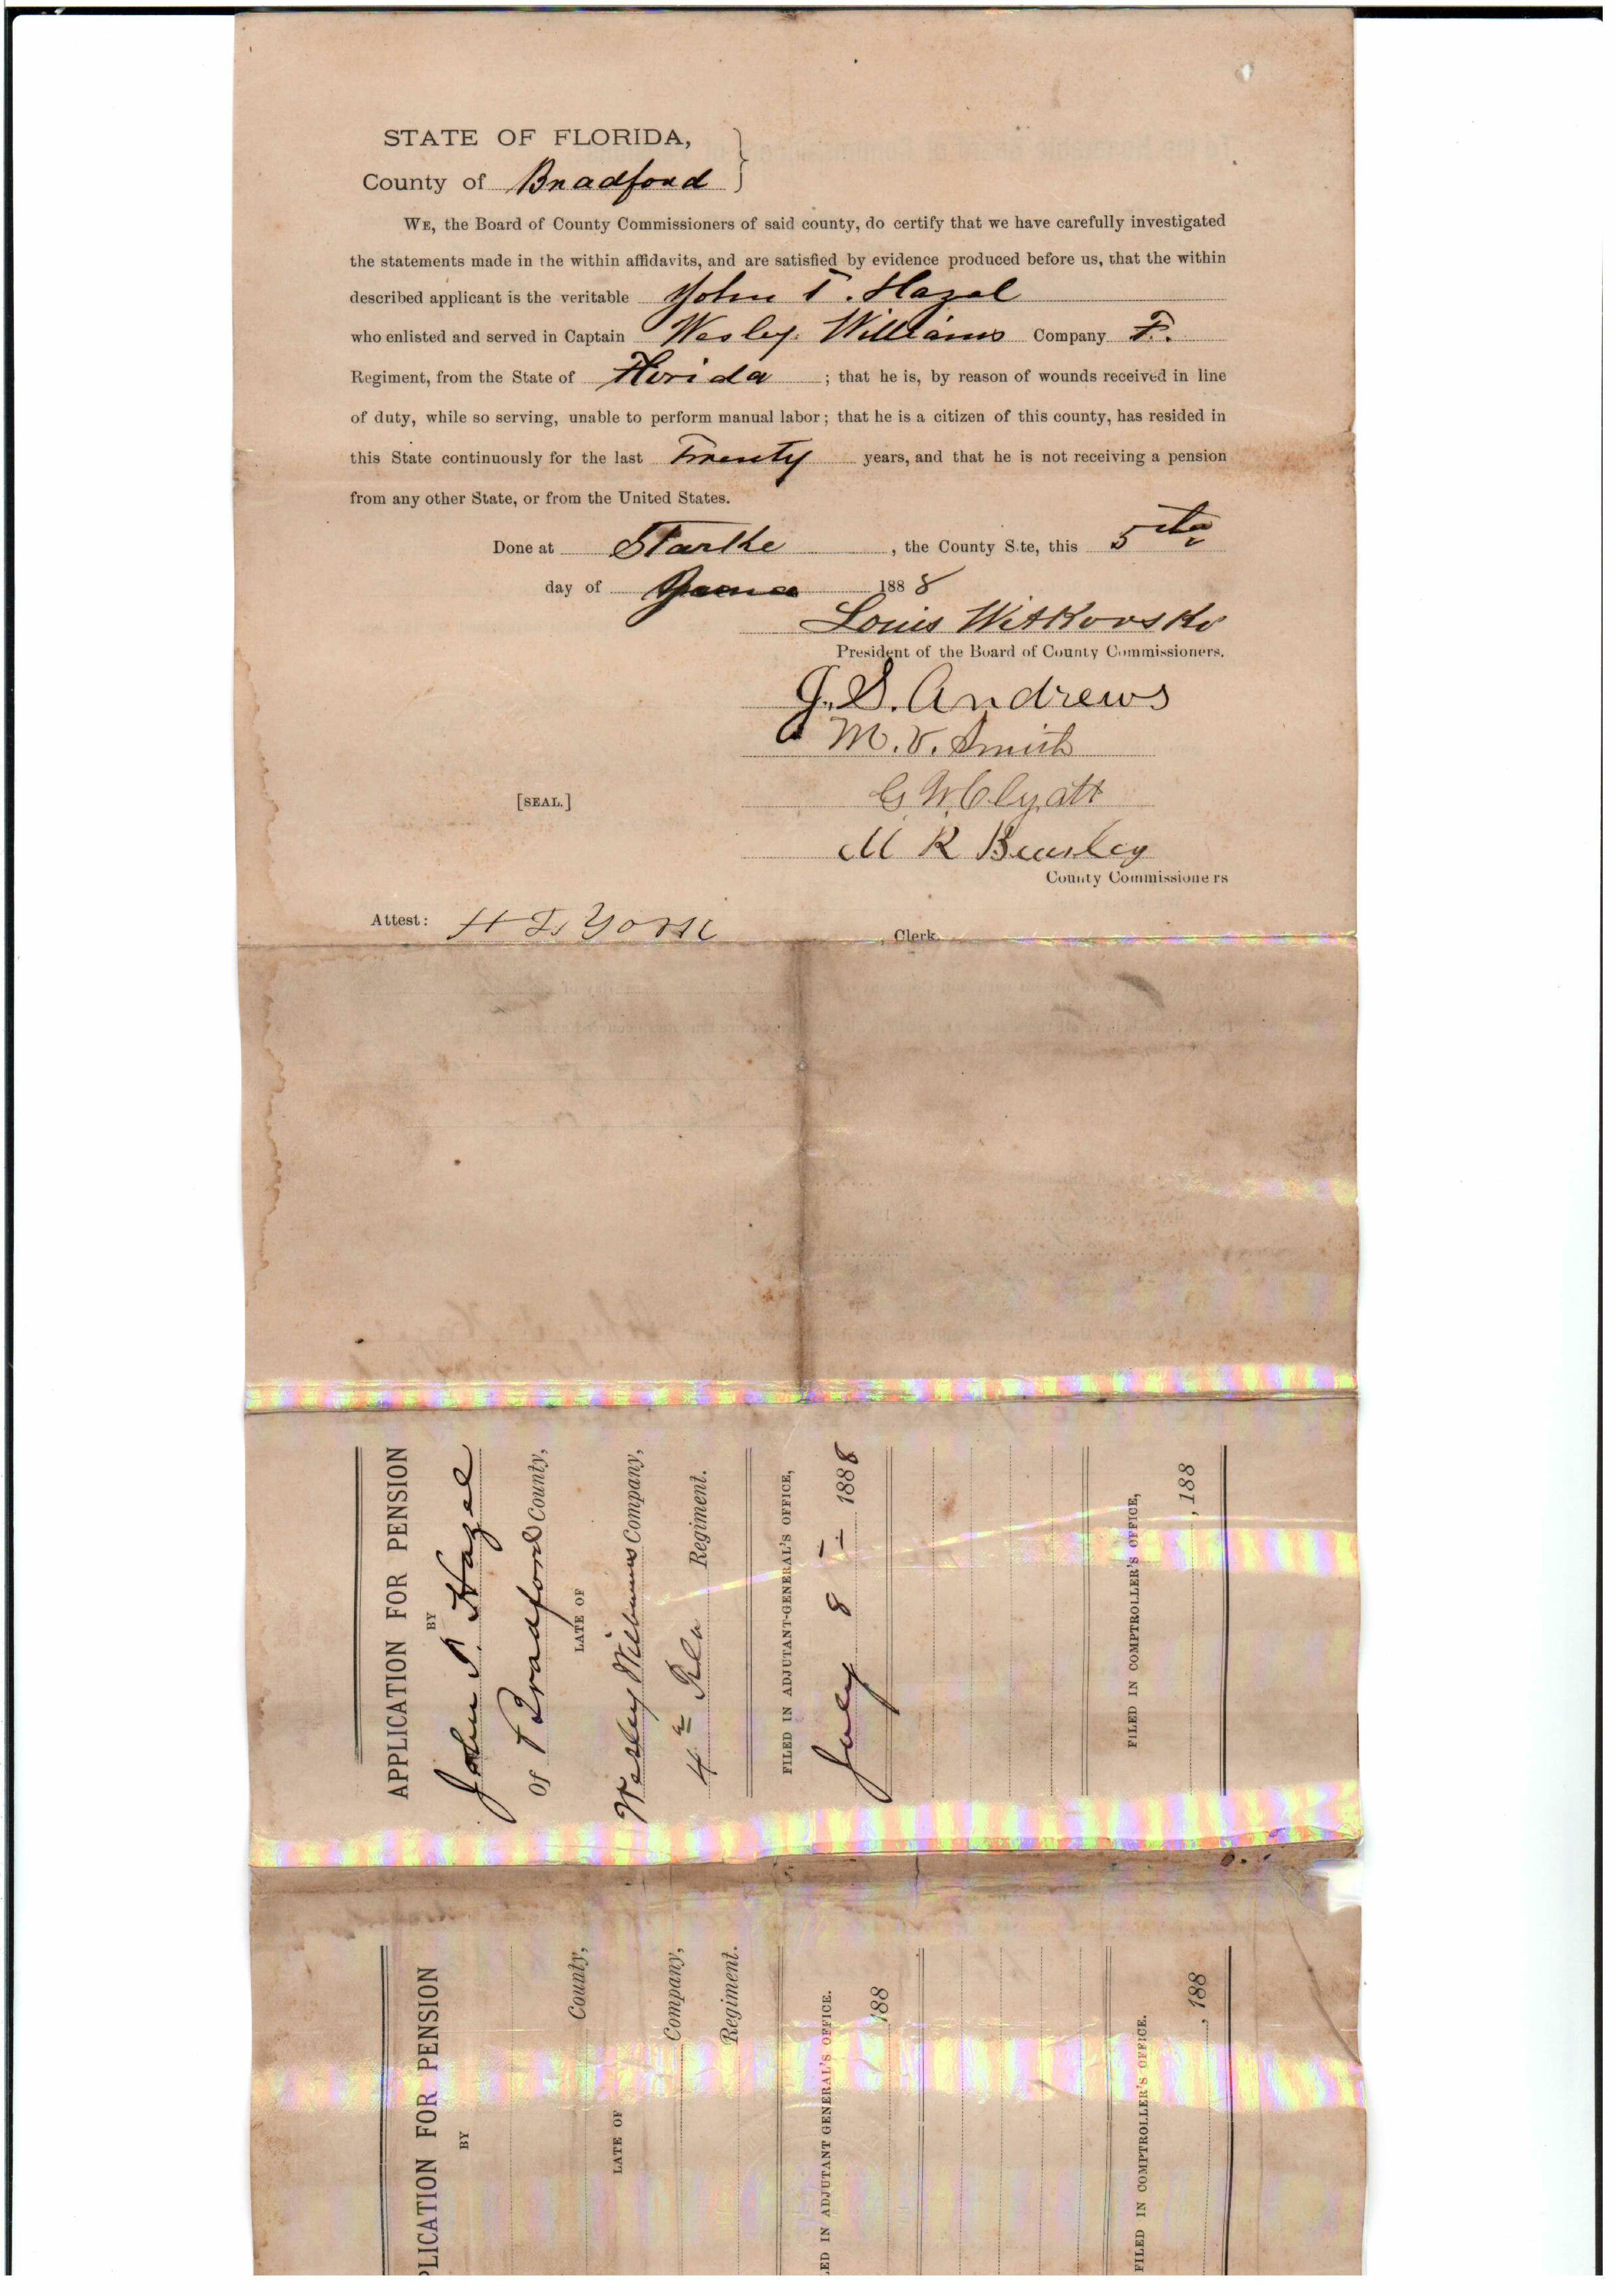 STATE OF FLORIDA,
County of Bradford
WE, the Board of County Commissioners of said county, do certify that we have carefully investigated
the statements made in the within affidavits, and are satisfied by evidence produced before us, that the within
described applicant is the veritable John T. Hazel
who enlisted and served in Captain Wesley Williams Company F.
Regiment, from the State of Florida ; that he is, by reason of wounds received in line
of duty, while so serving, unable to perform manual labor; that he is a citizen of this county, has resided in
this State continuously for the last Twenty years, and that he is not receiving a pension
from any other State, or from the United States.
Done at Starke , the County Site, this 5th
day of 1888
Louis Witkovski
President of the Board of County Commissioners.
J. S. Andrews
M. V. Smith
[SEAL.]
G W Clyatt
M R Beasley
County Commissioners
Attest: York , Clerk.
APPLICATION FOR PENSION
BY
John T. Hazel
of Bradford County,
LATE OF
Wesley Williams Company,
4th Fla Regiment.
FILED IN ADJUTANT-GENERAL'S OFFICE,
July 8 1888
FILED IN COMPTROLLER'S OFFICE,
, 188
PLICATION FOR PENSION
BY
County,
LATE OF
Company,
Regiment.
ED IN ADJUTANT GENERAL'S OFFICE.
188
FILED IN COMPTROLLER'S OFFICE.
, 188